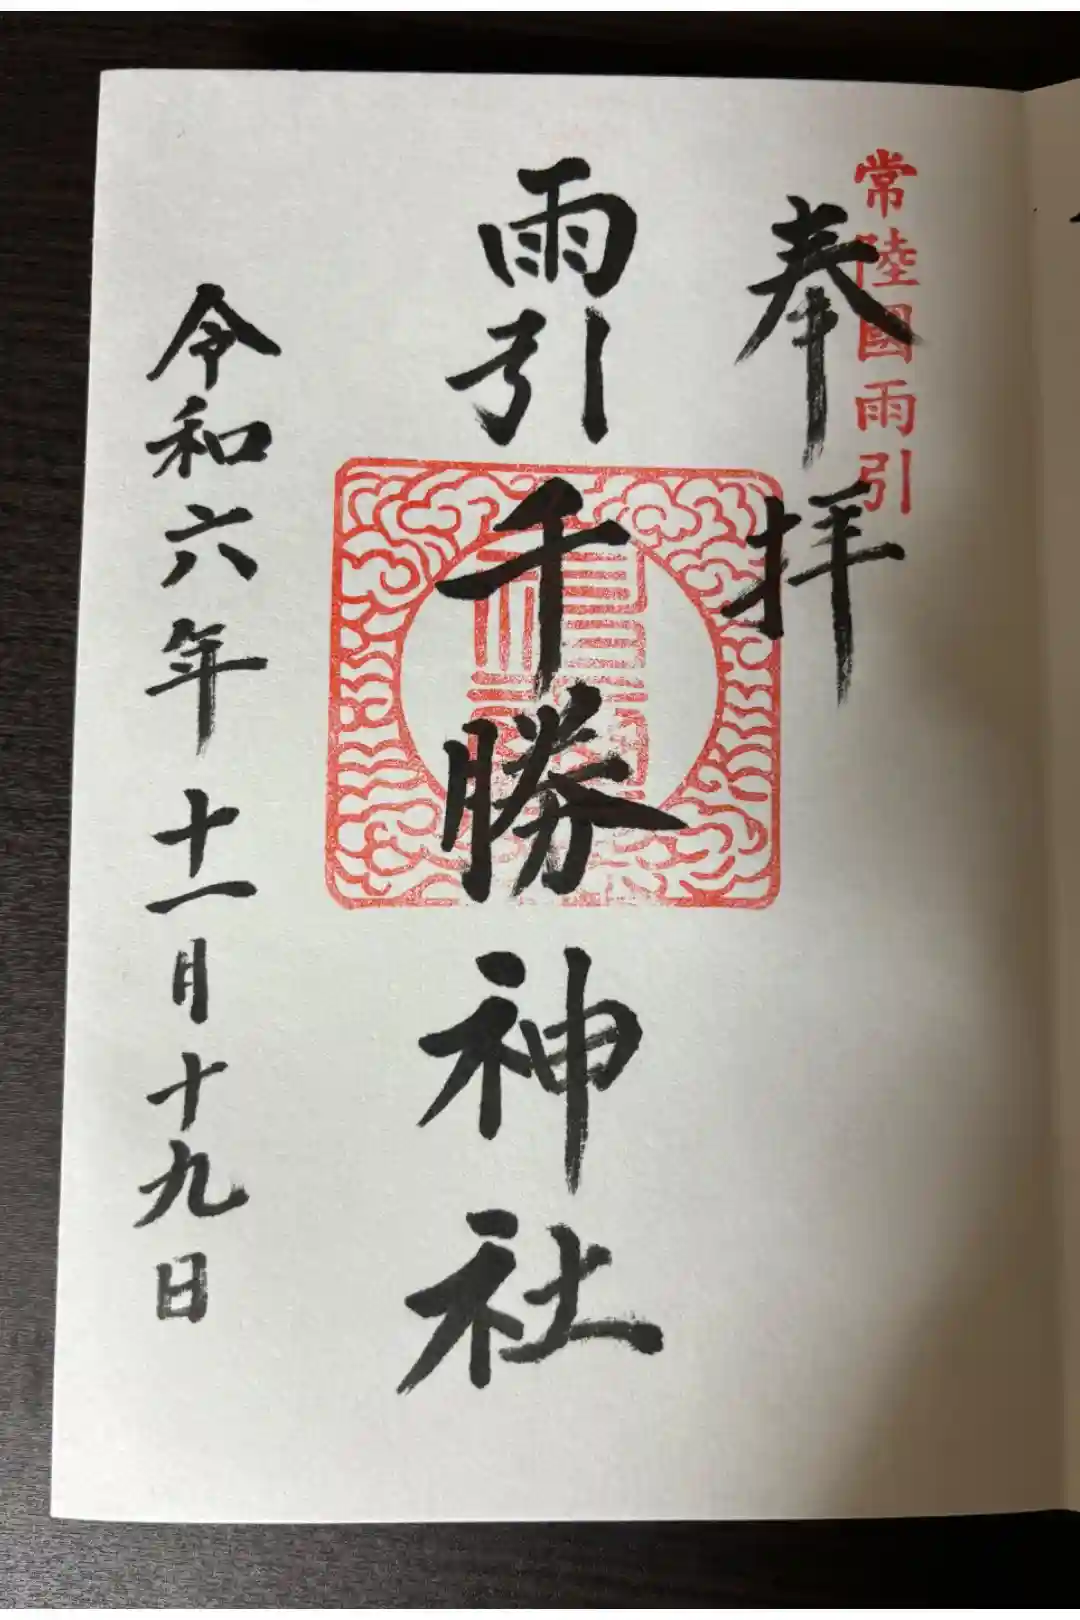 常陸國雨引
奉拝
雨引千勝神社
令和六年十一月十九日